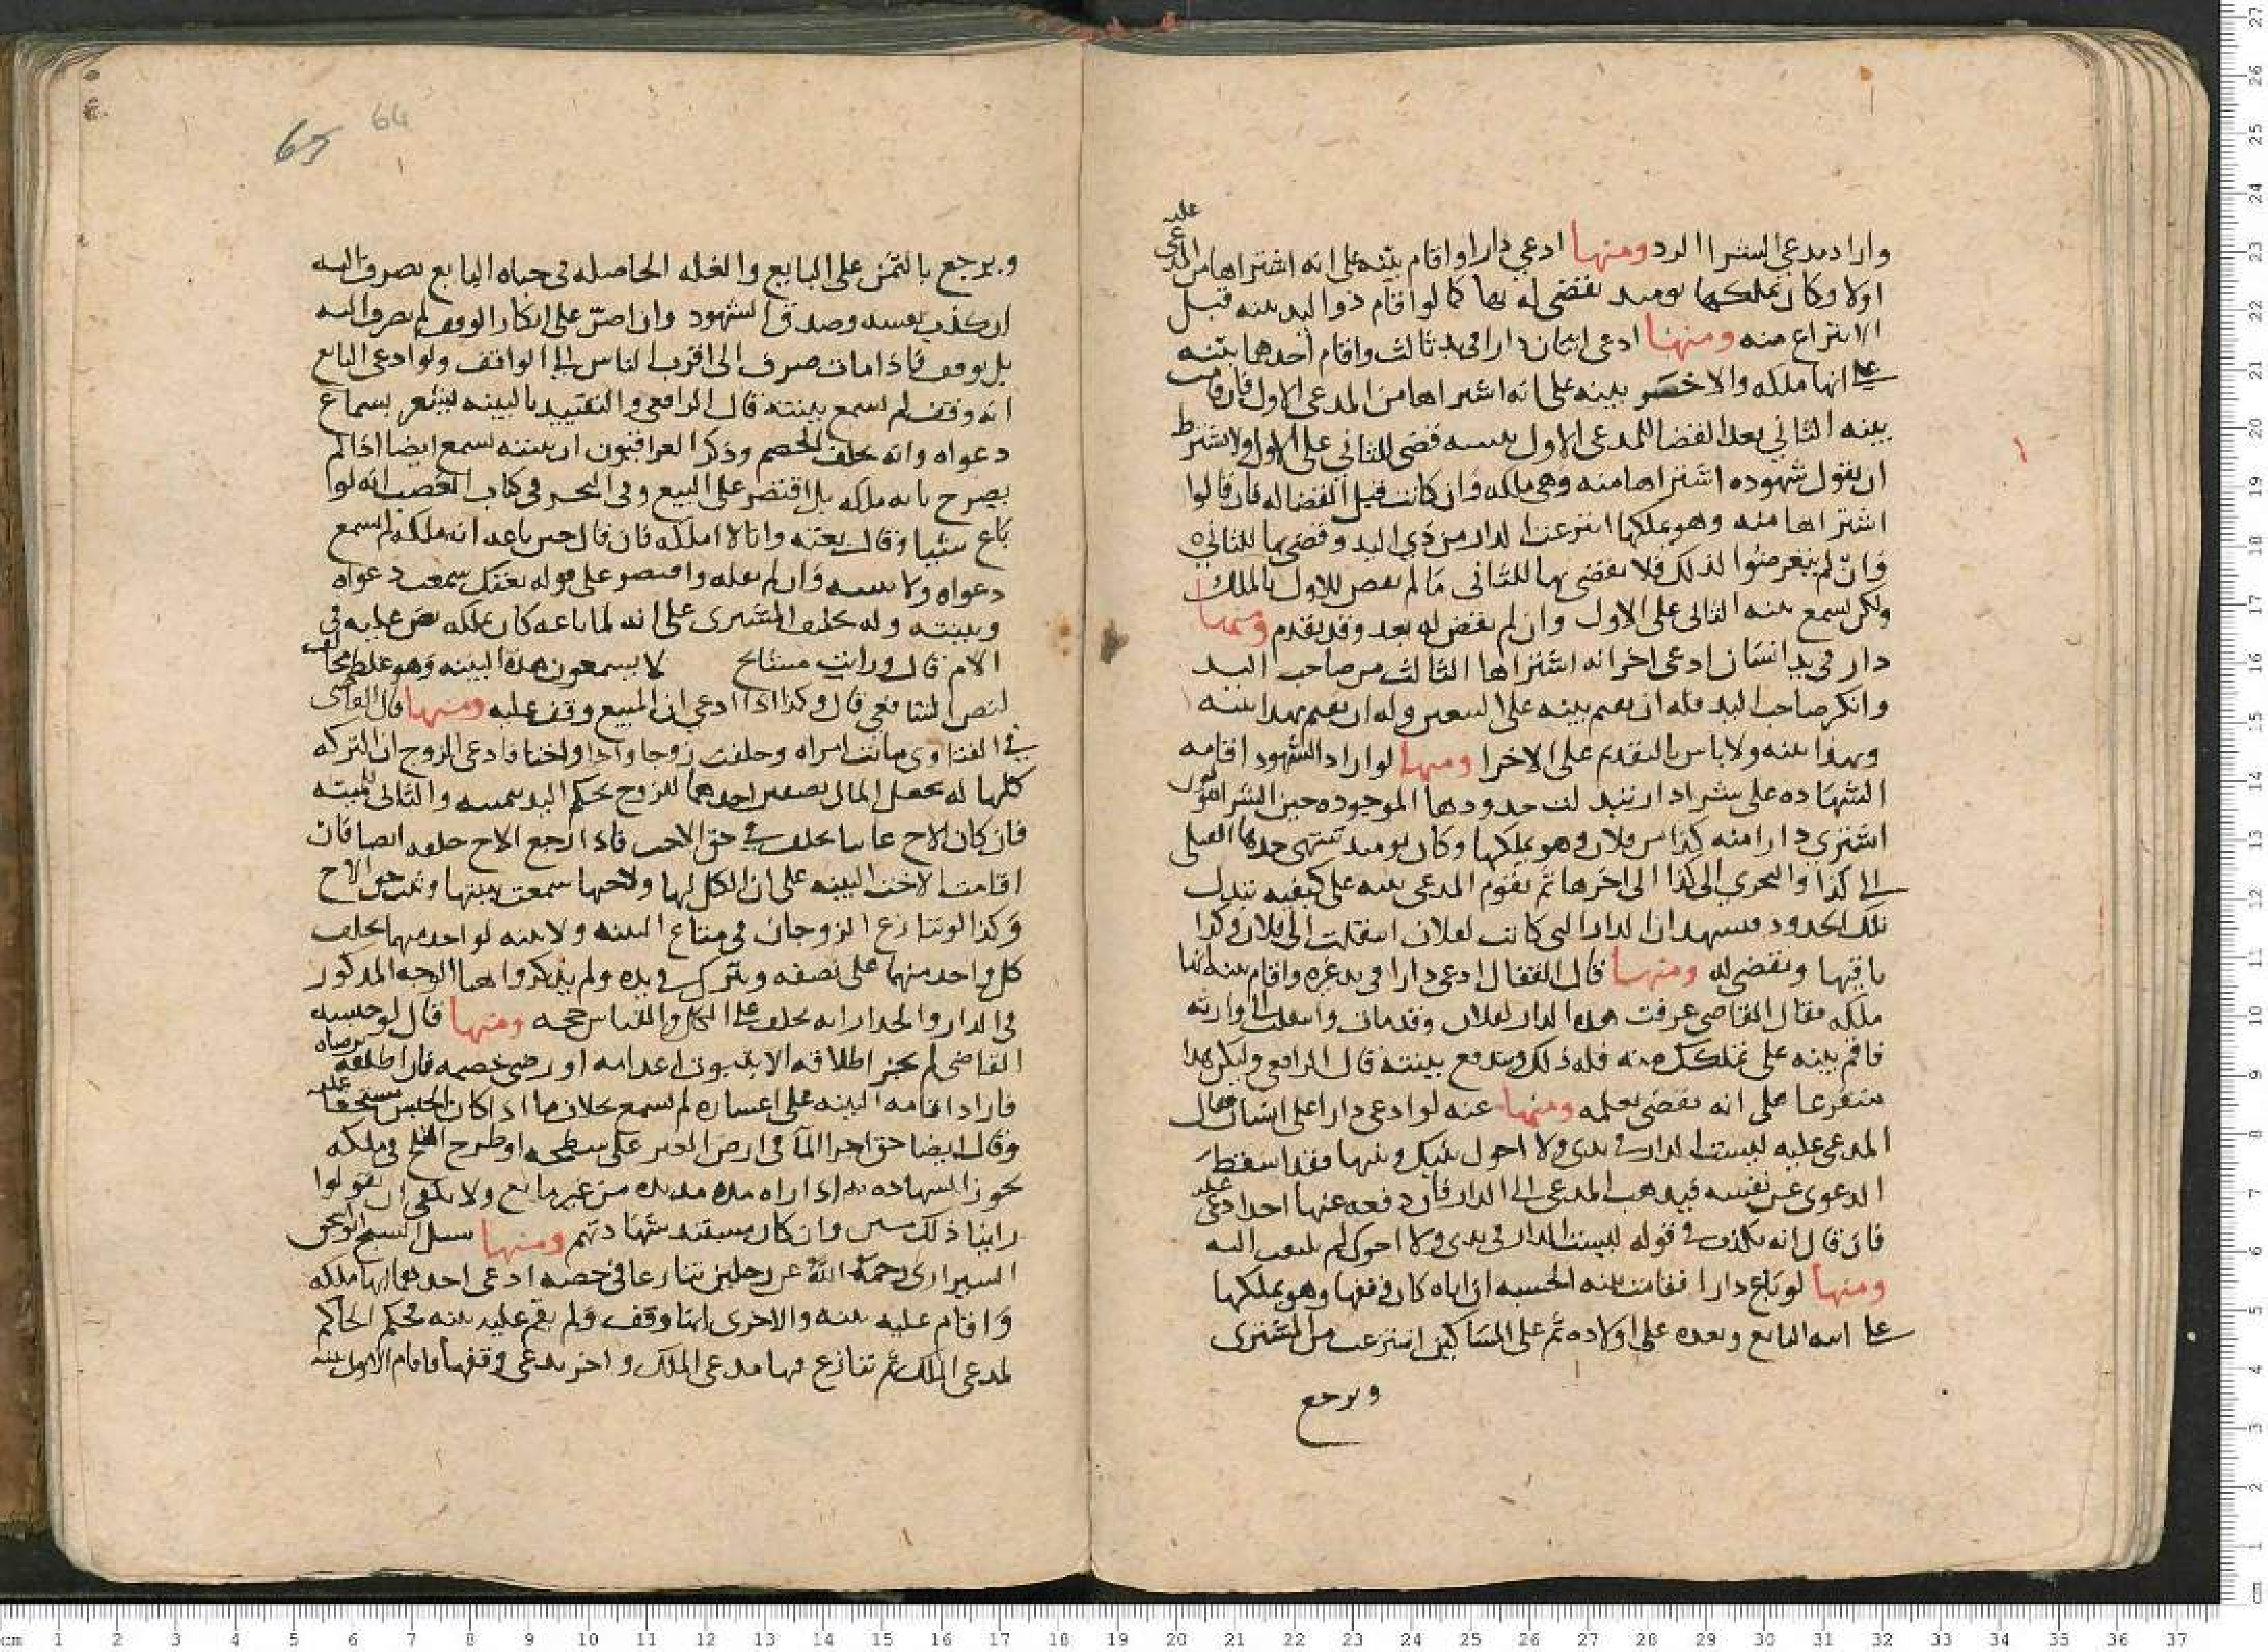 واراد مدعي الشرا الرد ومنها ادعي دارا واقام بينه على انه اشتراها من المدعى عليه
اولا وكان يملكها يوميد يقضى له بها كما لو اقام ذو اليد بينه قبل
الانتزاع منه ومنها ادعى اثنان دارا في يد ثالث واقام احدهما بينه
على انها ملكه والاخر بينه على انه اشتراها من المدعى الاول فان قامت
بينه الثاني بعد القضا للمدعى الاول ببينته قضى للثاني على الاول ولا يشترط
ان يقول شهوده اشتراها منه وهي ملكه وان كانت قبل القضا له فان قالوا
اشتراها منه وهو يملكها انتزعت الدار من ذي اليد وقضى بها للثاني
وان لم يتعرضوا لذلك فلا يقضى بها للثاني ما لم يقض للاول بالملك
ولكن تسمع بينه الثاني على الاول وان لم يقض له بعد وقد تقدم ومنها
دار في يد انسان ادعى اخر انه اشتراها الثالث من صاحب اليد
وانكر صاحب اليد فله ان يقيم بينه على البيعين وله ان يقيم بهذا بينه
وبهذا بينه ولا باس بالتقديم على الاخر ومنها لو اراد الشهود اقامه
الشهاده على شرا دار تبدلت حدودها الموجوده حين الشرا
اشترى دارا منه كذا من فلان وهو يملكها وكان يوميد تنتهى حدها القبلى
الى كذا والبحري الى كذا الى اخرها ثم يقوم المدعى بينه على كيفيه تبدل
تلك الحدود فيشهد ان الدار التى كانت لفلان انتقلت الى فلان وكذا
باقيها ويقضى له ومنها قال القفال ادعى دارا في يد غيره واقام بينه انها
ملكه فقال القاضي عرفت هذه الدار لفلان وقد مات وانتقلت الى وارثه
فاقم بينه على تملكك منه فله ذلك وتندفع بينته قال الرافعي وليكن هذا
متفرعا على انه يقضى بعلمه ومنها عنه لو ادعى دارا على انسان فقال
المدعى عليه ليست الدار في يدى ولا احول بينك وبينها فقد اسقط
الدعوى عن نفسه فيذهب المدعى الى الدار فان دفعه عنها احد ادعى عليه
فان قال انه يكذب في قوله ليست الدار في يدى ولا احول لم يلتفت اليه
ومنها لو باع دارا فقامت بينه الحسبه ان اباه كان وقفها وهو يملكها
على ابنه البايع وبعده على اولاده ثم على المساكين انتزعت من المشترى
ويرجع
64
65
ويرجع بالثمن على البايع والغله الحاصله في حياه البايع تصرف اليه
ان كذب نفسه وصدق الشهود وان اصر على انكار الوقف لم تصرف اليه
بل توقف فاذا مات صرفت الى اقرب الناس الى الواقف ولو ادعى البايع
انه وقف لم تسمع بينته قال الرافعي والتقييد بالبينه يشعر بسماع
دعواه وانه يحلف الخصم وذكر العراقيون ان بينته تسمع ايضا اذا لم
يصرح بانه ملكه بل اقتصر على البيع وفي البحر في كتاب الغصب انه لو
باع شيا وقال بعته وانا لا املكه فان قال حين باعه انه ملكه لم تسمع
دعواه ولا بينته وان لم يقله واقتصر على قوله بعتك سمعت دعواه
وبينته وله تحليف المشترى على انه لما باعه كان يملكه نص عليه في
الام قال ورايت مشايخ لا يسمعون هذه البينه وهو غلط مخالف
لنص الشافعي قال وكذا اذا ادعي ان المبيع وقف عليه ومنها قال
في الفتاوى ماتت امراه وخلفت زوجا واخا واختا فادعى الزوج ان التركه
كلها له يجعل المال نصفين احدهما للزوج بحكم اليد بيمينه والثاني للميته
فان كان الاخ غايبا يحلف في حق الاخت فاذا رجع الاخ حلفه ايضا فان
اقامت الاخت البينه على ان الكل لها ولاخيها سمعت بينتها وثبت حق الاخ
وكذا لو تنازع الزوجان في متاع البيت ولا بينه لواحد منهما يحلف
كل واحد منهما على نصفه ويترك في يده ولم يذكروا هنا الوجه المذكور
في الدار والجدار انه يحلف على الكل والقياس ومنها قال لو حبسه
القاضي لم يجز اطلاقه الا بثبوت اعدامه او رضى خصمه فان اطلقه برضاه
فاراد اقامه البينه على اعساره لم تسمع بخلاف ما اذا كان الحبس مستحقا عليه
وقال ايضا حق اجرا الما في ارض الغير على سطحه او طرح الثلج في ملكه
تجوز الشهاده به اذا راه مده مديده من غير مانع ولا يكفى ان يقولوا
راينا ذلك سنين وان كان مستند شهادتهم ومنها سيل الشيخ ابو اسحق
الشيرازى رحمه الله عن رجلين تنازعا في حصه ادعى احدهما انها ملكه
واقام عليه بينه والاخرى انها وقف ولم يقم عليه بينه فحكم الحاكم
لمدعى الملك ثم تنازع فيها مدعى الملك واخر يدعى وقفها فاقام الاول بينه